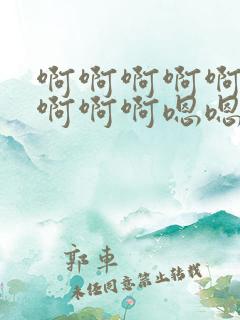 啊啊啊啊啊
啊啊啊嗯嗯
郭車
未经同意禁止转载